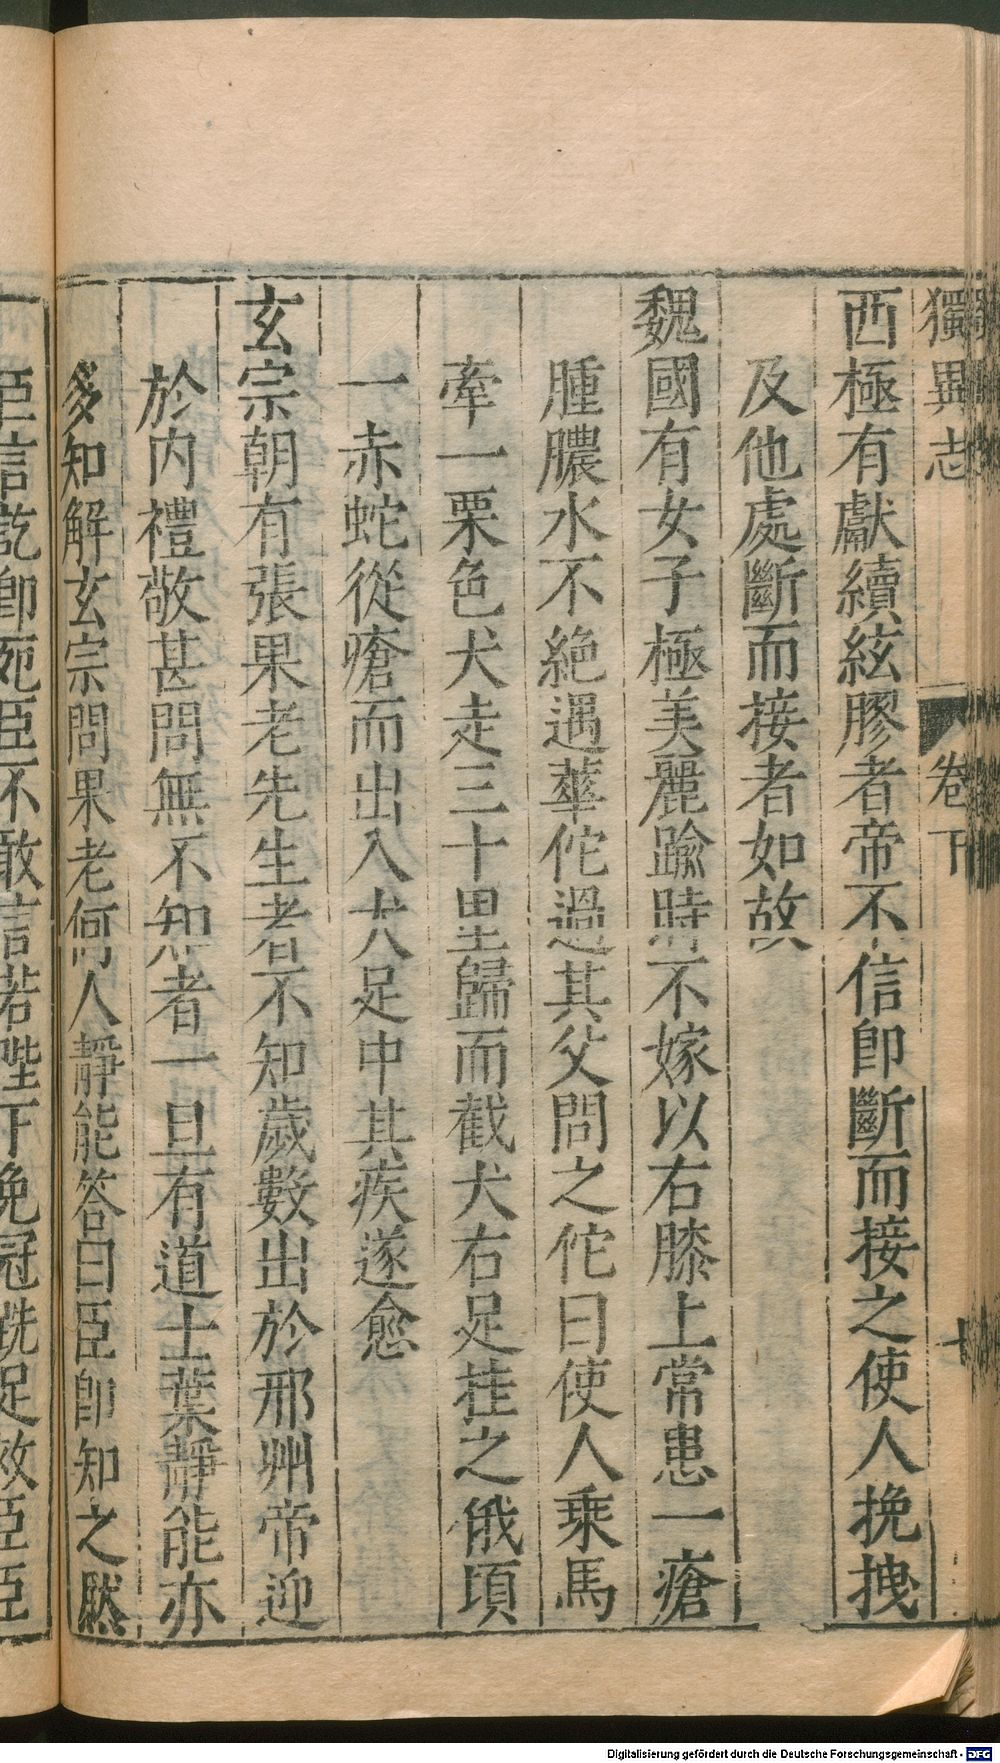 獨異志 卷下 七
西極有獻續絃膠者帝不信卽斷而接之使人挽拽
及他處斷而接者如故
魏國有女子極美麗踰時不嫁以右膝上常患一瘡
腫膿水不絕遇華佗過其父問之佗曰使人乘馬
牽一栗色犬走三十里歸而截犬右足挂之俄頃
一赤蛇從瘡而出入犬足中其疾遂愈
玄宗朝有張果老先生者不知歲數出於邢州帝迎
於内禮敬甚問無不知者一旦有道士葉靜能亦
多知解玄宗問果老何人靜能答曰臣卽知之然
臣信訖卽死臣不敢言若陛下免冠跣足救臣臣
Digitalisierung gefördert durch die Deutsche Forschungsgemeinschaft - DFG